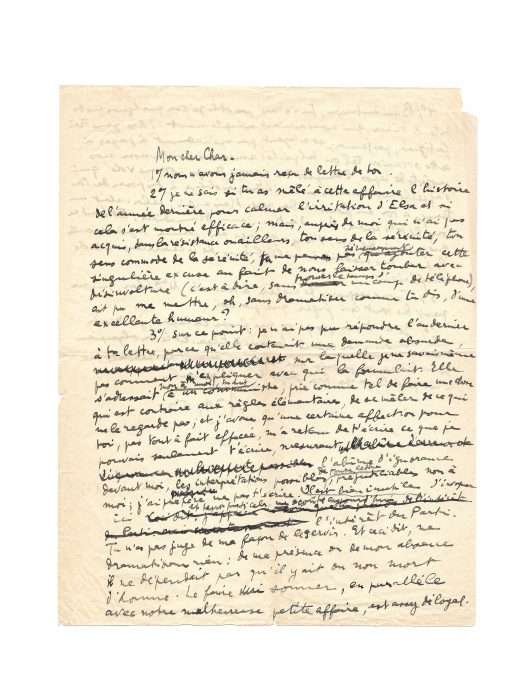 Mon cher Char.
1°/ nous n'avons jamais reçu de lettre de toi.
2°/ je ne sais si tu as mêlé à cette affaire l'histoire
de l'année dernière pour calmer l'irritation d'Elsa et si
cela s'est montré efficace ; mais, auprès de moi qui n'ai pas
acquis, dans la résistance ou ailleurs, ton sens de la sérénité, ton
sens commode de la sérénité, cette
singulière excuse au fait de nous laisser tomber avec
désinvolture (c'est à dire, sans trouver le temps un coup de téléphone),
ait pu me mettre, oh, sans dramatiser comme tu dis, d'une
excellente humeur ?
3°/ sur ce point : je n'ai pas pu répondre l'an dernier
à ta lettre, parce qu'elle contenait une demande absurde,
sur laquelle je ne savais même
pas comment m'expliquer avec qui la formulait. Elle
s'adressait non à moi, mais à un communiste, prié comme tel de faire une chose
qui est contraire aux règles élémentaires, de se mêler de ce qui
ne le regarde pas, et j'avais qu'une certaine affection pour
toi, pas tout à fait effacée, m'a retenu de t'écrire ce que je
pouvais seulement t'écrire, mesurant
l'abîme d'ignorance
devant moi, les interprétations possibles de toute lettre, préjudiciables non à
moi ; j'ai préféré ne pas t'écrire. Il est bien inutile d'évoquer
ici
l'intérêt du Parti.
Tu n'as pas juge de ma façon de le servir. Et ceci dit, ne
dramatisons rien : de ma présence ou de mon absence
il ne dépendait pas qu'il y ait ou non mort
d'homme. Le faire sonner, en parallèle
avec notre malheureuse petite affaire, est assez déloyal.